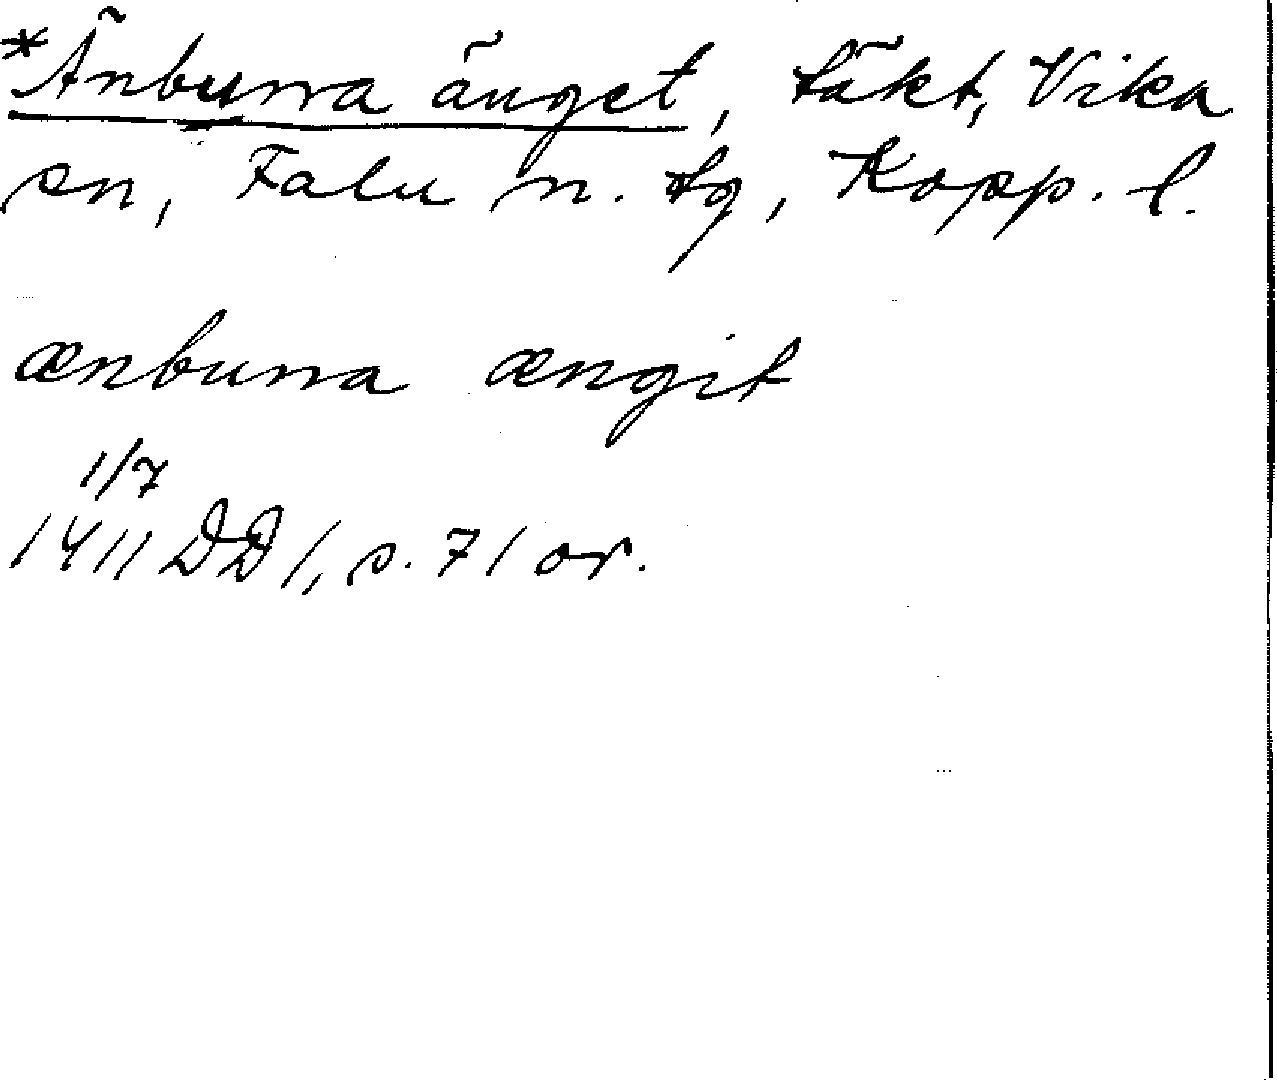 *Änburra änget, täkt, Vika
sn, Falu n. tg, Kopp. l.
ænburra ængit
1/7
1411 DD 1, s. 71 or.